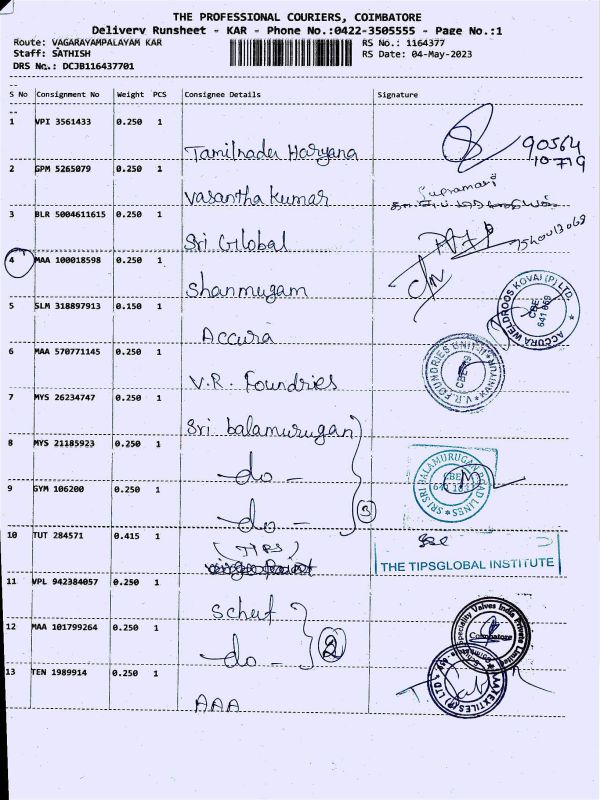 THE PROFESSIONAL COURIERS, COIMBATORE
Delivery Runsheet - KAR - Phone No.:0422-3505555 - Page No.:1
Route: VAGARAYAMPALAYAM KAR RS No.: 1164377
Staff: SATHISH RS Date: 04-May-2023
DRS No.: DCJB116437701
S No Consignment No Weight PCS Consignee Details Signature
1 VPI 3561433 0.250 1
Tamilnadu Haryana 90564
10719
2 GPM 5265079 0.250 1
Vasantha kumar
3 BLR 5004611615 0.250 1
Sri Global
4 MAA 100018598 0.250 1
Shanmugam
5 SLM 318897913 0.150 1
Accura
ACCURA WELDROOS KOVAI (P) LTD. CBE 641 659
6 MAA 570771145 0.250 1
V.R. Foundries
V.R. FOUNDRIES UNIT-II
7 MYS 26234747 0.250 1
Sri balamurugan
8 MYS 21185923 0.250 1
-do-
SRI BALAMURUGAN ROAD LINES CBE
9 GYM 106200 0.250 1
-do- 3
10 TUT 284571 0.415 1
(TIPS)
THE TIPSGLOBAL INSTITUTE
11 VPL 942384057 0.250 1
Scheif
12 MAA 101799264 0.250 1
-do- 2
Speciality Valves India Private Limited Coimbatore
13 TEN 1989914 0.250 1
AAA